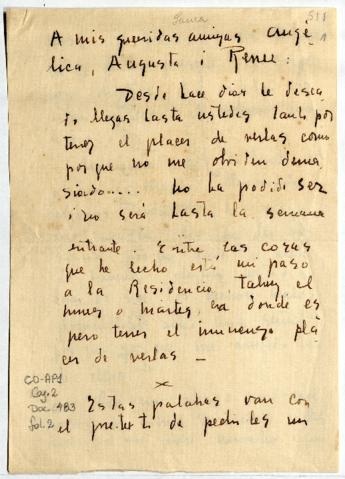 511
A mis queridas amigas Angé
lica, Augusta i Renee:
Desde hace dias he desea
do llegar hasta ustedes tanto por
tener el placer de verlas como
porque no me olviden dema
siado.... no ha podido ser
i no será hasta la semana
entrante. Entre las cosas
que he hecho está mi paso
a la Residencia, talvez el
lunes o martes, en donde es
pero tener el inmenso pla
cer de verlas —
x
Estas palabras van con
el pretexto de pedirles un
CO-AP1
Caj: 2
Doc: 483
fol. 2